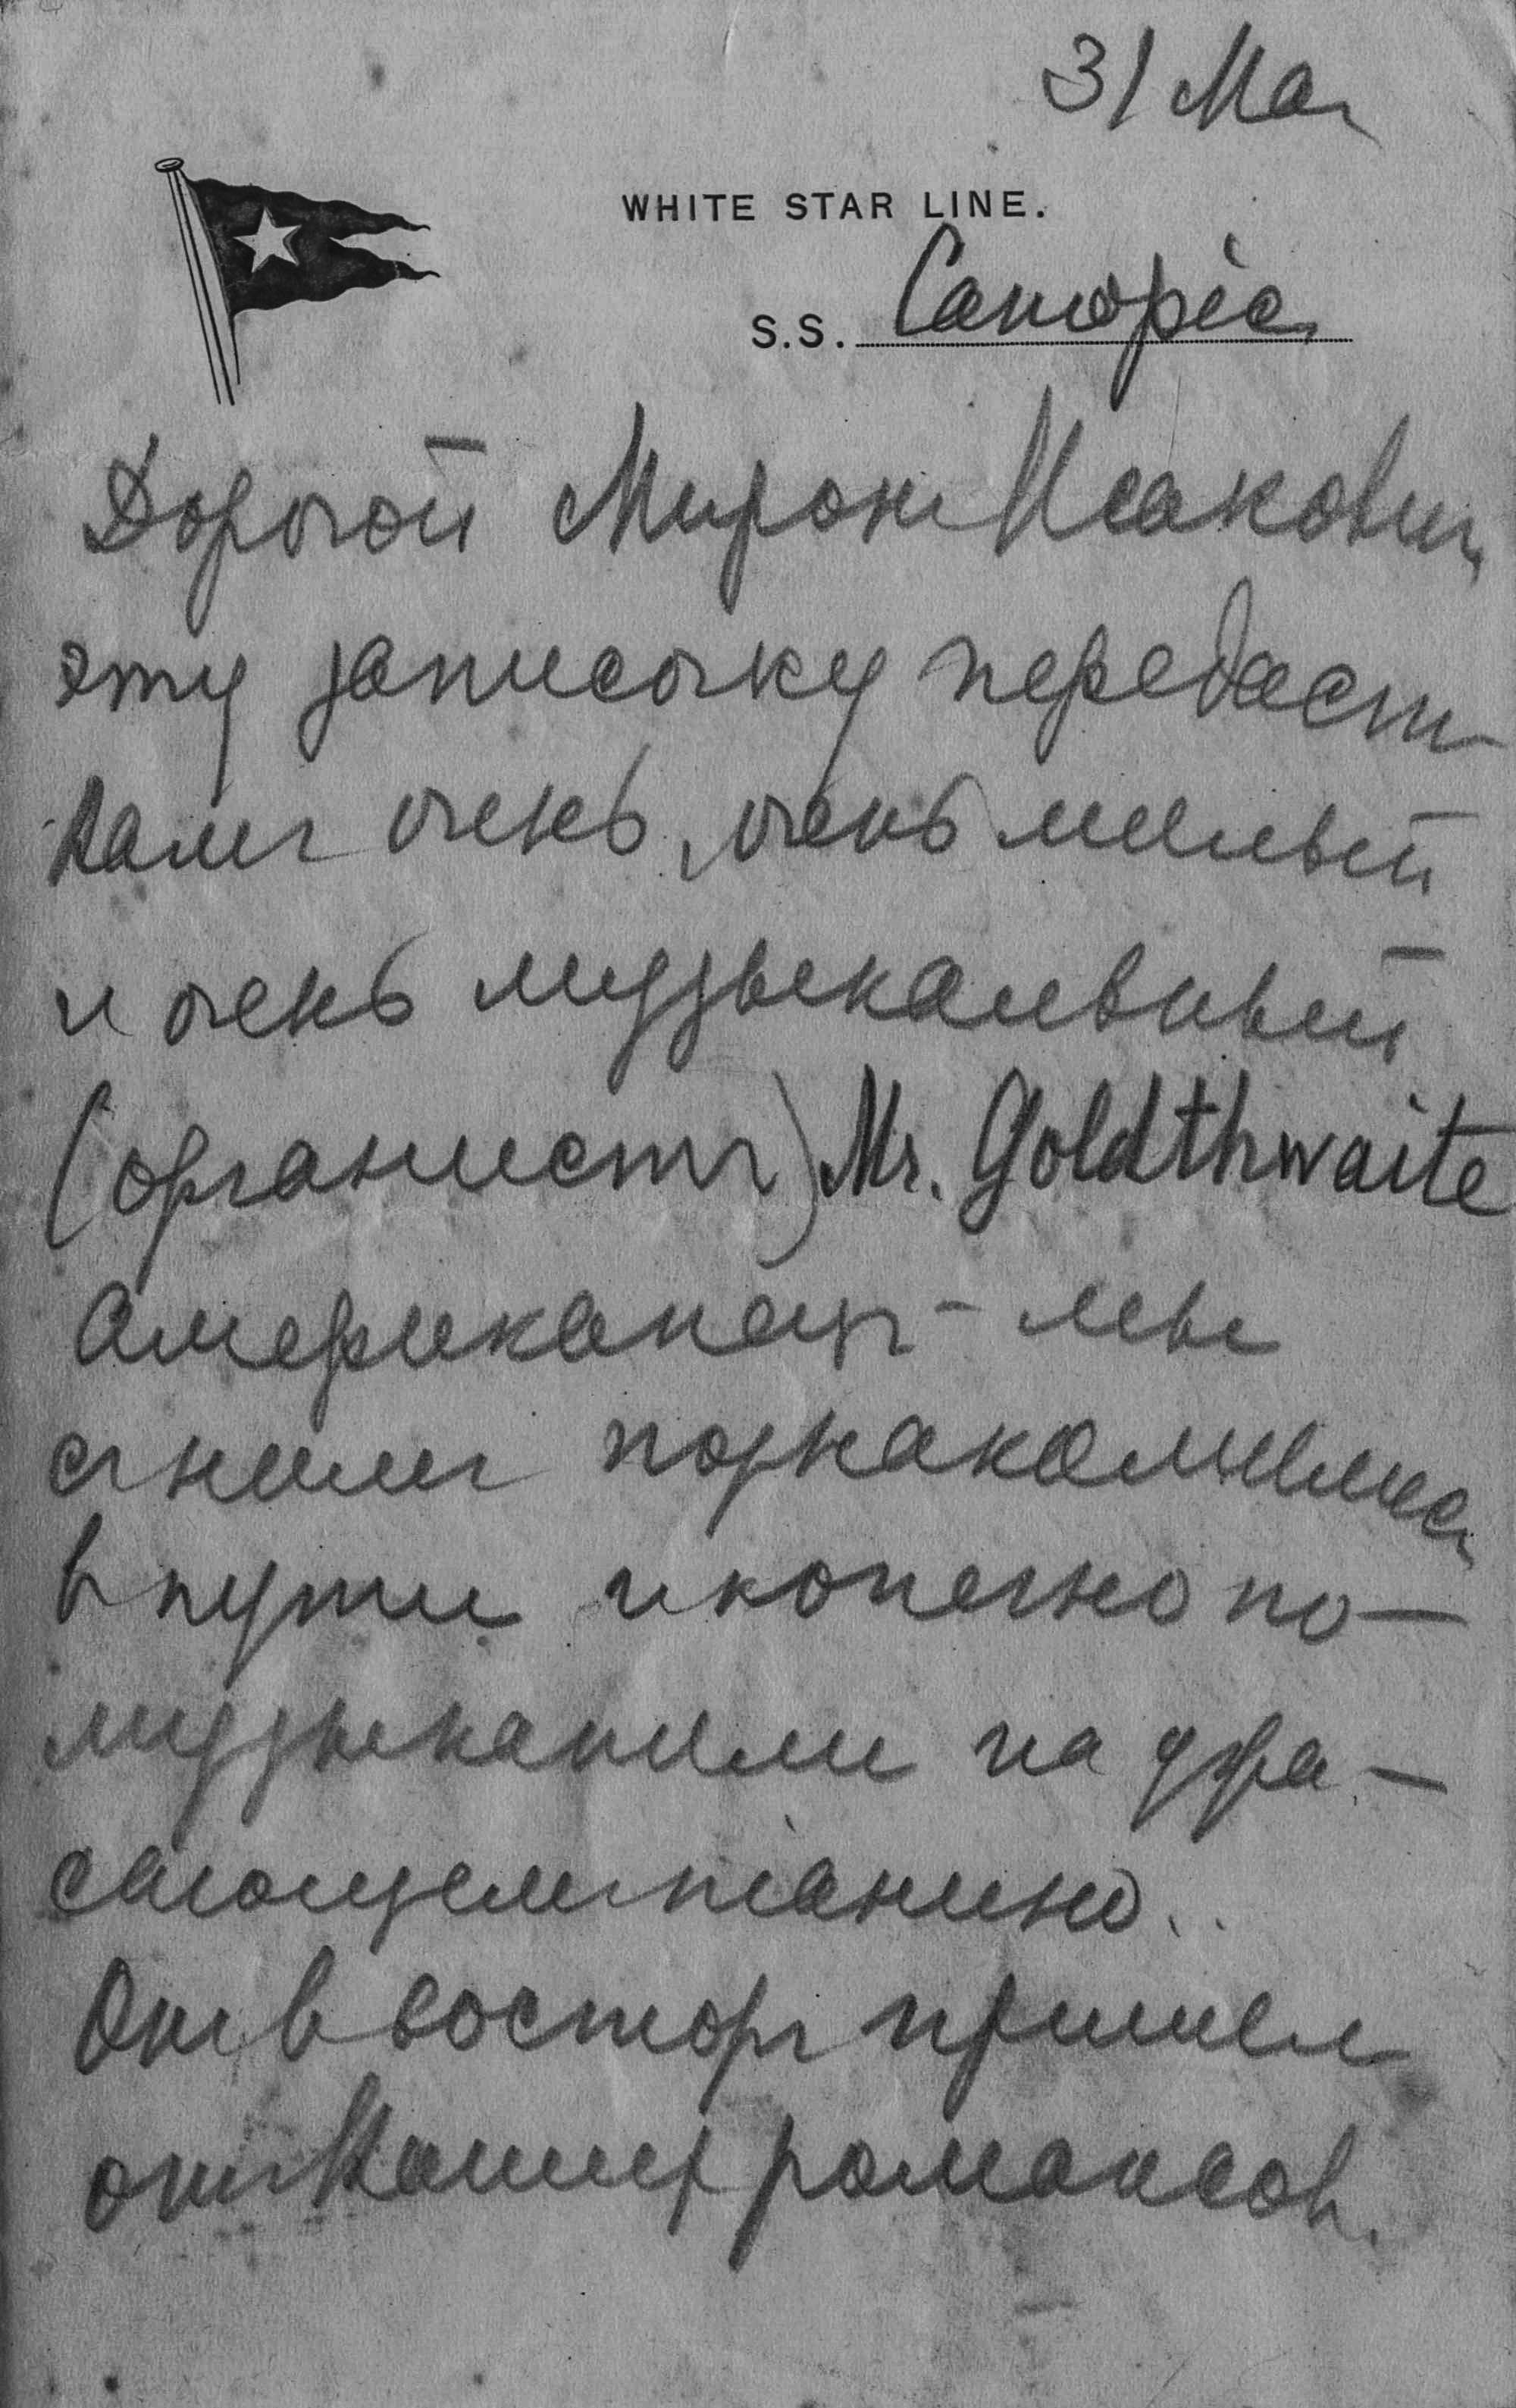 31 Мая
WHITE STAR LINE.
S.S. Canopic
Дорогой Мирон Исакович
эту записочку передаст
Вамъ очень, очень милый
и очень музыкальный
(органистъ) Mr. Goldthwaite
Американецъ - мы
съ нимъ познакомились
в пути и конечно по-
музыканили на
піанино..
Он в восторг пришел
от Ваших романсов.